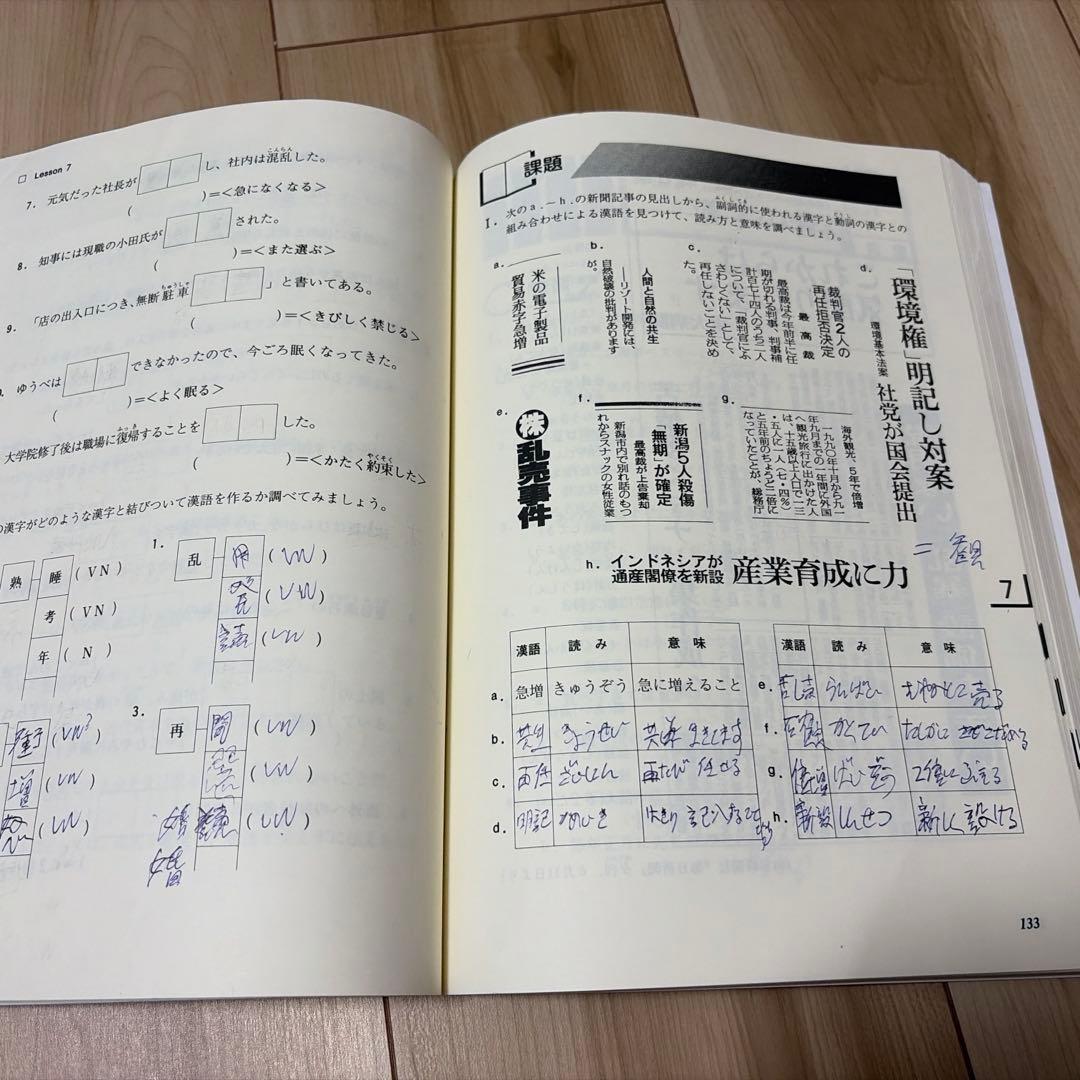 Lesson 7
7. 元気だった社長が し、社内は混乱した。
( )=<急になくなる>
8. 知事には現職の小田氏が された。
( )=<また選ぶ>
9. 「店の出入口につき、無断駐車 」と書いてある。
( )=<きびしく禁じる>
ゆうべは できなかったので、今ごろ眠くなってきた。
( )=<よく眠る>
大学院修了後は職場に復帰することを した。
( )=<かたく約束した>
の漢字がどのような漢字と結びついて漢語を作るか調べてみましょう。
熟 睡 (VN)
考 (VN)
年 (N)
1. 乱 用 (VN)
(VN)
(VN)
(VN?)
増 (VN)
(VN)
3. 再 開 (VN)
(VN)
婚 (VN)
婚
課題
I. 次のa.~h.の新聞記事の見出しから、副詞的に使われる漢字と動詞の漢字との
組み合わせによる漢語を見つけて、読み方と意味を調べましょう。
a.
米の電子製品
貿易赤字急増
b.
人間と自然の共生
──リゾート開発には、
自然破壊の批判があります
が。
c.
裁判官2人の
再任拒否決定
最高裁
最高裁は今年前半に任
期が切れる判事、判事補
計百七十四人のうち二人
について、「裁判官にふ
さわしくない」として、
再任しないことを決め
た。
d.
「環境権」明記し対案
環境基本法案 社党が国会提出
e.
株乱売事件
f.
新潟5人殺傷
「無期」が確定
最高裁が上告棄却
新潟市内で別れ話のもつ
れからスナックの女性従業
g.
海外観光、5年で倍増
一九九〇年十月から九一
年九月までの一年間に外国
へ観光旅行に出かけた人
は、十五歳以上人口で一三
・五人に一人(七・四%)
と五年前のちょうど二倍に
なっていたことが、総務庁
h. インドネシアが
通産閣僚を新設 産業育成に力
= 観
7
漢語 読み 意味
a. 急増 きゅうぞう 急に増えること
b. 共生 きょうせい
c. 再任 さいにん 再たび 任せる
d. 明記 めいき
漢語 読み 意味
e. 乱売 らんばい 売る
f. かくてい たしかに
g. 倍増 ばいぞう 2倍に ふえる
h. 新設 しんせつ 新しく 設ける
133